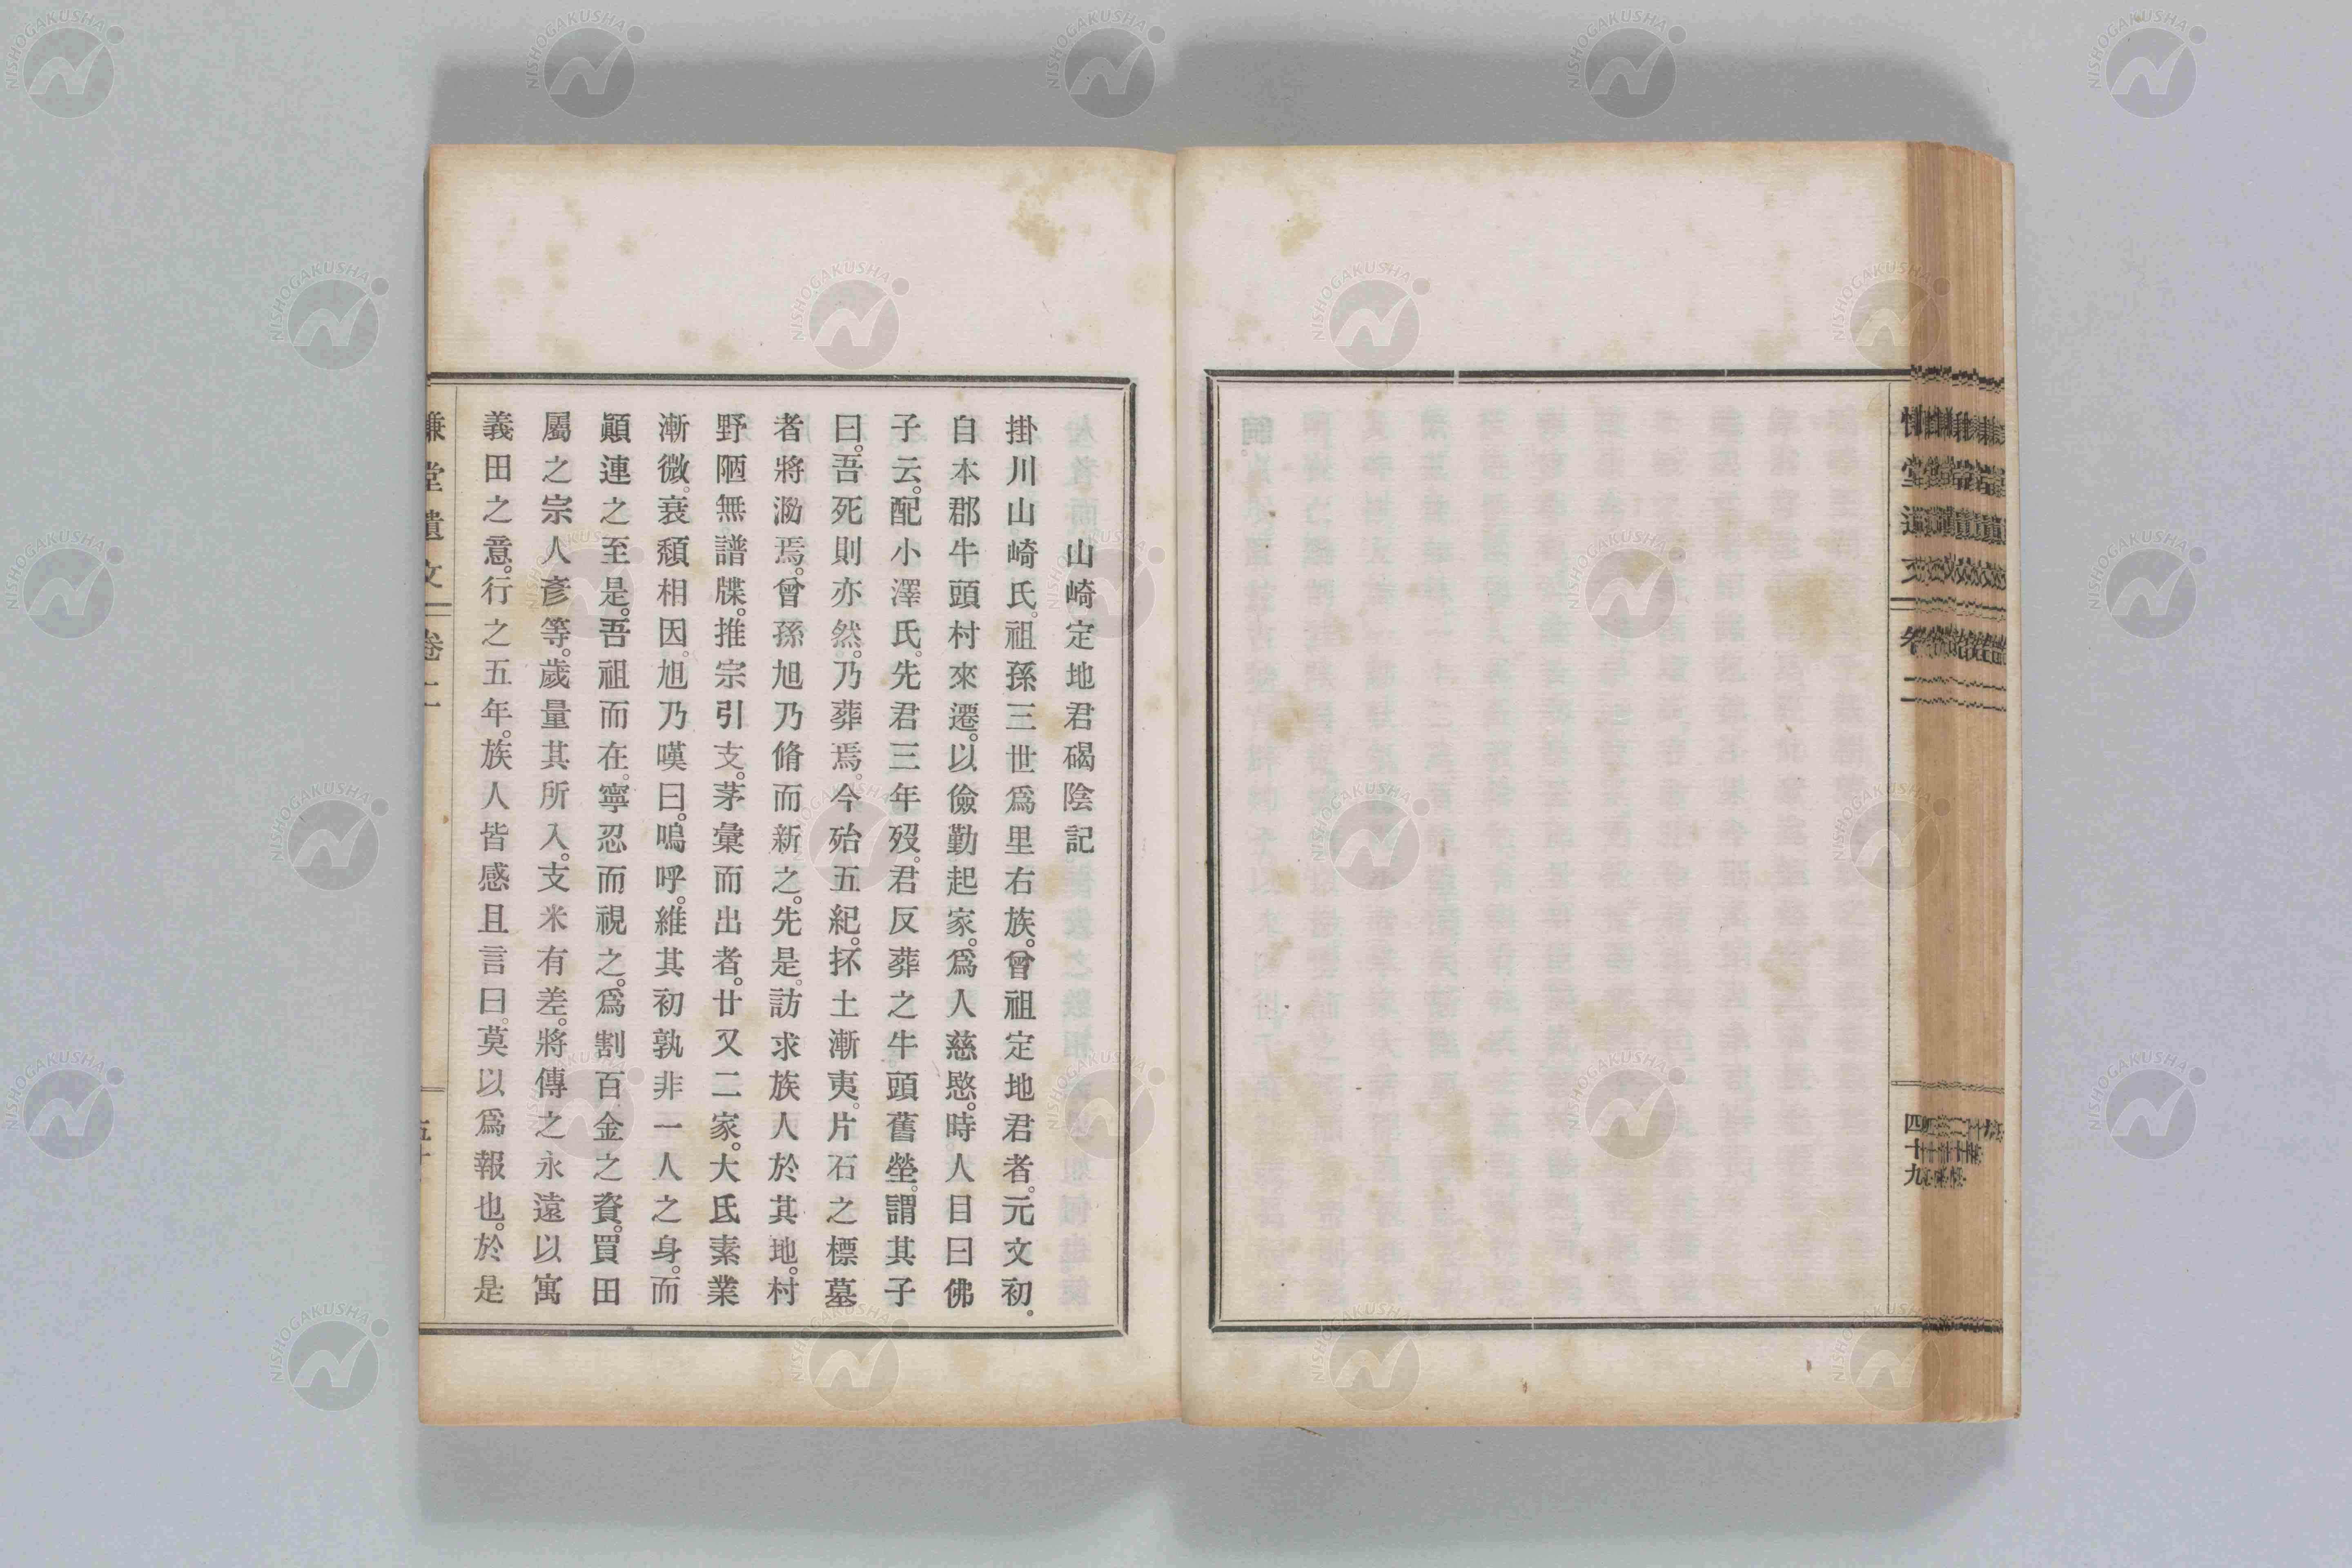 山崎定地君碣陰記
掛川山崎氏。祖孫三世爲里右族。曾祖定地君者。元文初。
自本郡牛頭村來遷。以儉勤起家。爲人慈愍。時人目曰佛
子云。配小澤氏。先君三年歿。君反葬之牛頭舊塋。謂其子
曰。吾死則亦然。乃葬焉。今殆五紀。抔土漸夷。片石之標墓
者將泐焉。曾孫旭乃脩而新之。先是。訪求族人於其地。村
野陋無譜牒。推宗引支。茅彙而出者。廿又二家。大氐素業
漸微。衰頽相因。旭乃嘆曰。嗚呼。維其初孰非一人之身。而
顚連之至是。吾祖而在。寧忍而視之。爲割百金之資。買田
屬之宗人彥等。歲量其所入。支米有差。將傳之永遠以寓
義田之意。行之五年。族人皆感且言曰。莫以爲報也。於是
慊堂遺文 卷二
四十九
NISHOGAKUSHA